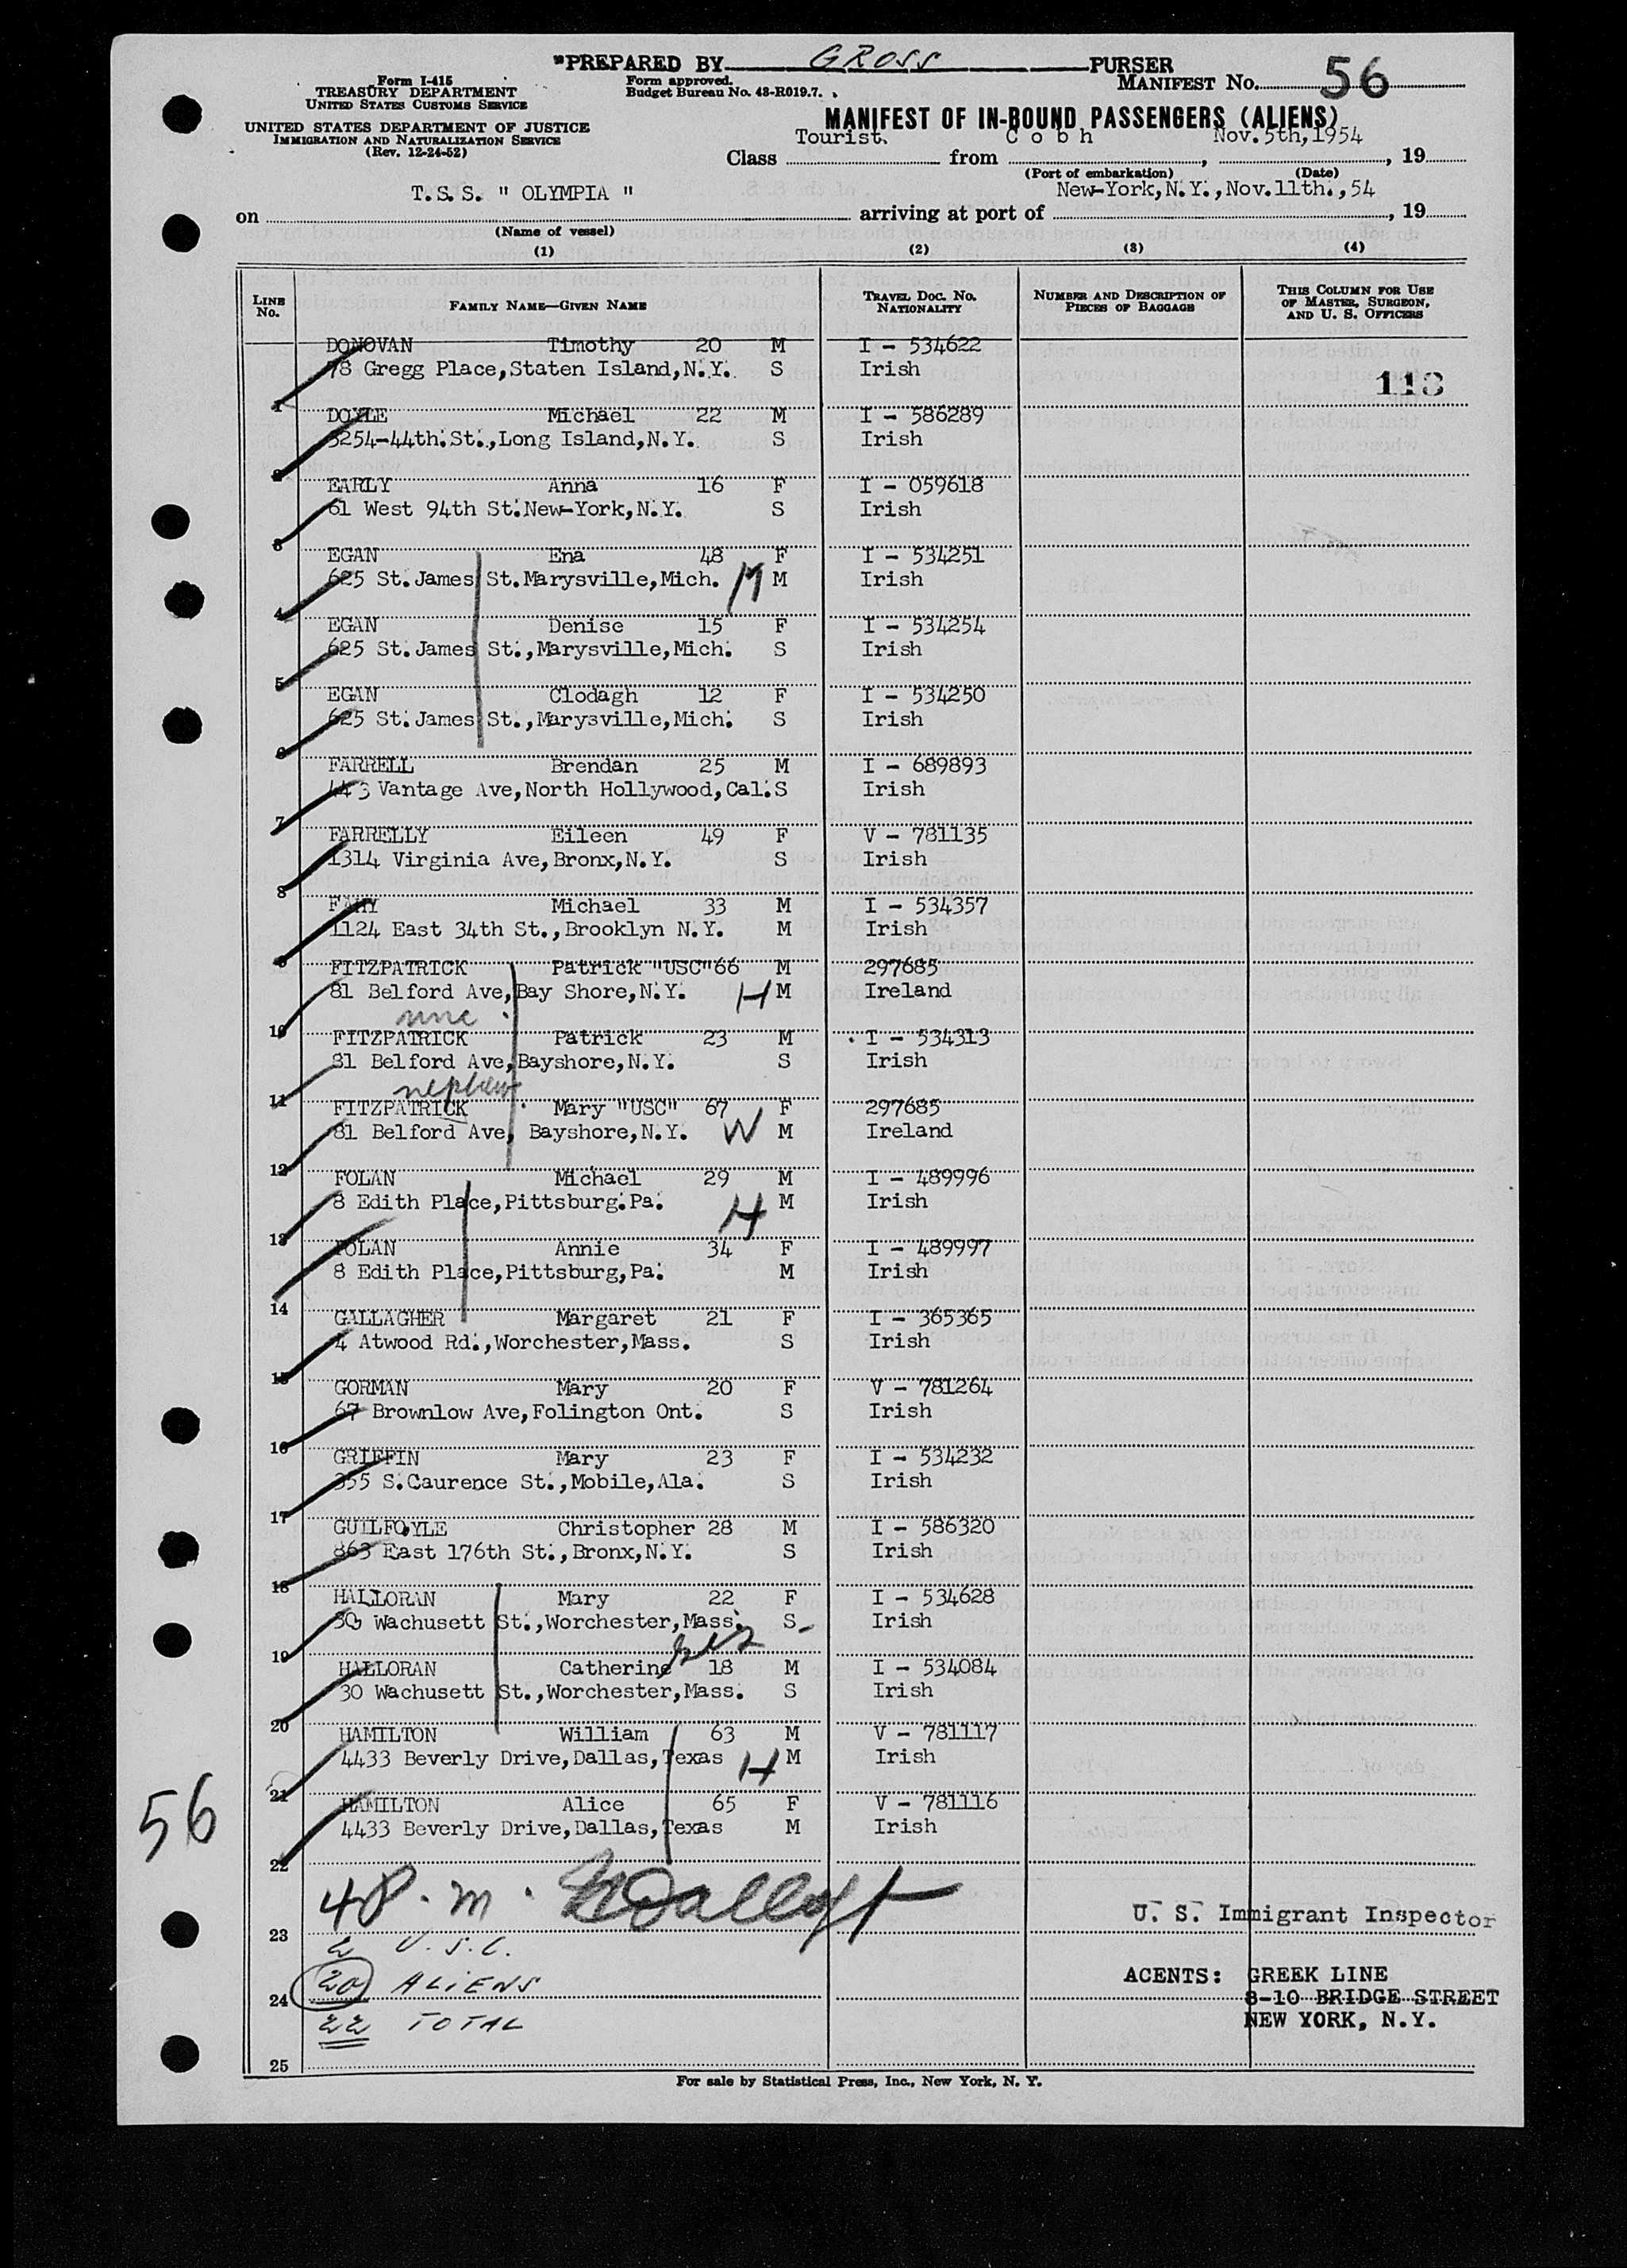 "PREPARED BY GROSS PURSER
Form I-415
TREASURY DEPARTMENT
UNITED STATES CUSTOMS SERVICE
Form approved.
Budget Bureau No. 43-R019.7.
MANIFEST NO. 56
UNITED STATES DEPARTMENT OF JUSTICE
IMMIGRATION AND NATURALIZATION SERVICE
(Rev. 12-24-52)
MANIFEST OF IN-BOUND PASSENGERS (ALIENS)
Class Tourist. from Cobh, Nov. 5th, 1954, 19
(Port of embarkation) (Date)
on T.S.S. " OLYMPIA " arriving at port of New-York, N.Y., Nov. 11th., 54, 19
(Name of vessel)
(1) (2) (3) (4)
LINE No. FAMILY NAME—GIVEN NAME TRAVEL DOC. NO. NATIONALITY NUMBER AND DESCRIPTION OF PIECES OF BAGGAGE THIS COLUMN FOR USE OF MASTER, SURGEON, AND U. S. OFFICERS
DONOVAN Timothy 20 M I - 534622
78 Gregg Place, Staten Island, N.Y. S Irish
113
1
DOYLE Michael 22 M I - 586289
3254-44th. St., Long Island, N.Y. S Irish
2
EARLY Anna 16 F I - 059618
61 West 94th St. New-York, N.Y. S Irish
3
EGAN Ena 48 F I - 534251
625 St. James St. Marysville, Mich. M M Irish
4
EGAN Denise 15 F I - 534254
625 St. James St., Marysville, Mich. S Irish
5
EGAN Clodagh 12 F I - 534250
625 St. James St., Marysville, Mich. S Irish
6
FARRELL Brendan 25 M I - 689893
443 Vantage Ave, North Hollywood, Cal. S Irish
7
FARRELLY Eileen 49 F V - 781135
1314 Virginia Ave, Bronx, N.Y. S Irish
8
FAHY Michael 33 M I - 534357
1124 East 34th St., Brooklyn N.Y. M Irish
9
FITZPATRICK Patrick "USC" 66 M 297685
81 Belford Ave, Bay Shore, N.Y. H M Ireland
10
FITZPATRICK Patrick 23 M I - 534313
81 Belford Ave, Bayshore, N.Y. S Irish
nephew
11
FITZPATRICK Mary "USC" 67 F 297685
81 Belford Ave, Bayshore, N.Y. W M Ireland
12
FOLAN Michael 29 M I - 489996
8 Edith Place, Pittsburg. Pa. H M Irish
13
FOLAN Annie 34 F I - 489997
8 Edith Place, Pittsburg, Pa. M Irish
14
GALLAGHER Margaret 21 F I - 365365
4 Atwood Rd., Worchester, Mass. S Irish
15
GORMAN Mary 20 F V - 781264
67 Brownlow Ave, Folington Ont. S Irish
16
GRIFFIN Mary 23 F I - 534232
355 S. Caurence St., Mobile, Ala. S Irish
17
GUILFOYLE Christopher 28 M I - 586320
863 East 176th St., Bronx, N.Y. S Irish
18
HALLORAN Mary 22 F I - 534628
30 Wachusett St., Worchester, Mass. S Irish
19
HALLORAN Catherine 18 M I - 534084
30 Wachusett St., Worchester, Mass. S Irish
20
HAMILTON William 63 M V - 781117
4433 Beverly Drive, Dallas, Texas H M Irish
21
HAMILTON Alice 65 F V - 781116
4433 Beverly Drive, Dallas, Texas M Irish
56
22
4 P.m.
U. S. Immigrant Inspector
23
2 U.S.C.
20 ALIENS
ACENTS: GREEK LINE
8-10 BRIDGE STREET
24
22 TOTAL
NEW YORK, N.Y.
25
For sale by Statistical Press, Inc., New York, N. Y.